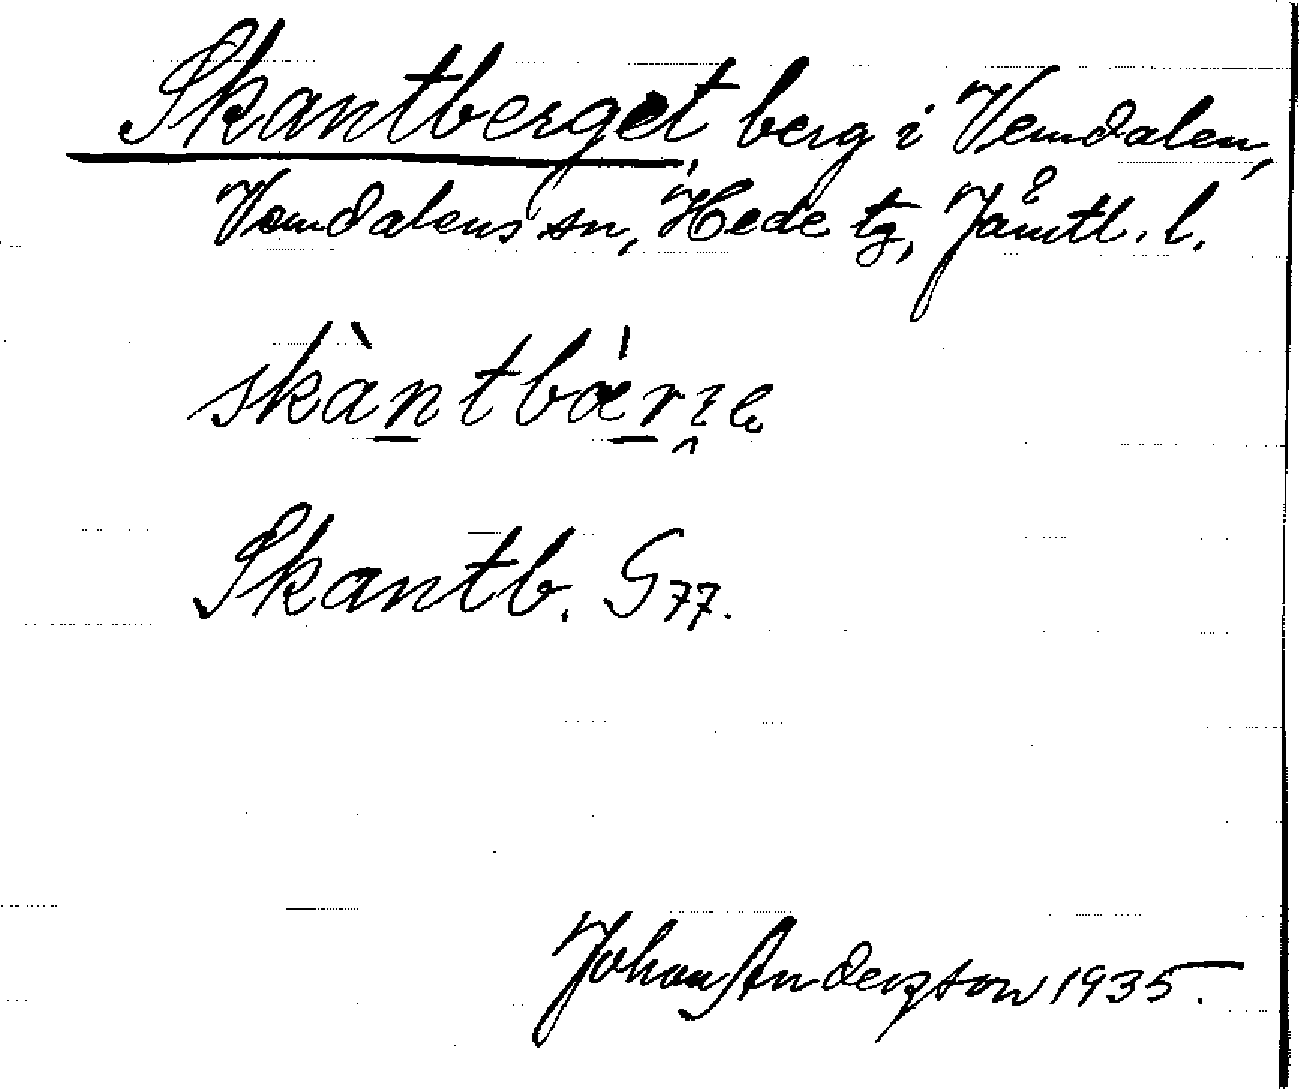 Skantberget, berg i Vemdalen,
Vemdalens sn, Hede tg, Jämtl. l.
Skantb. G77.
Johan Anderzson 1935.